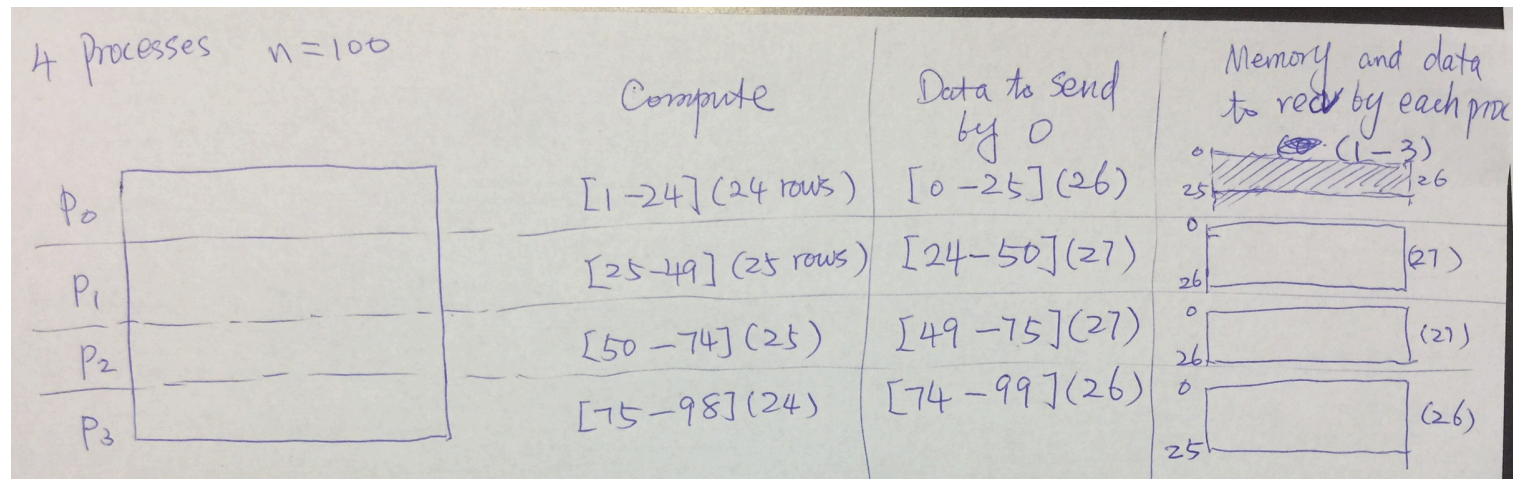 4 Processes n=100
Compute
Data to send
by 0
Memory and data
to recv by each proc
(1-3)
P0 [1-24] (24 rows) [0-25] (26) 0 25 26
P1 [25-49] (25 rows) [24-50] (27) 0 26 (27)
P2 [50-74] (25) [49-75] (27) 0 26 (27)
P3 [75-98] (24) [74-99] (26) 0 25 (26)